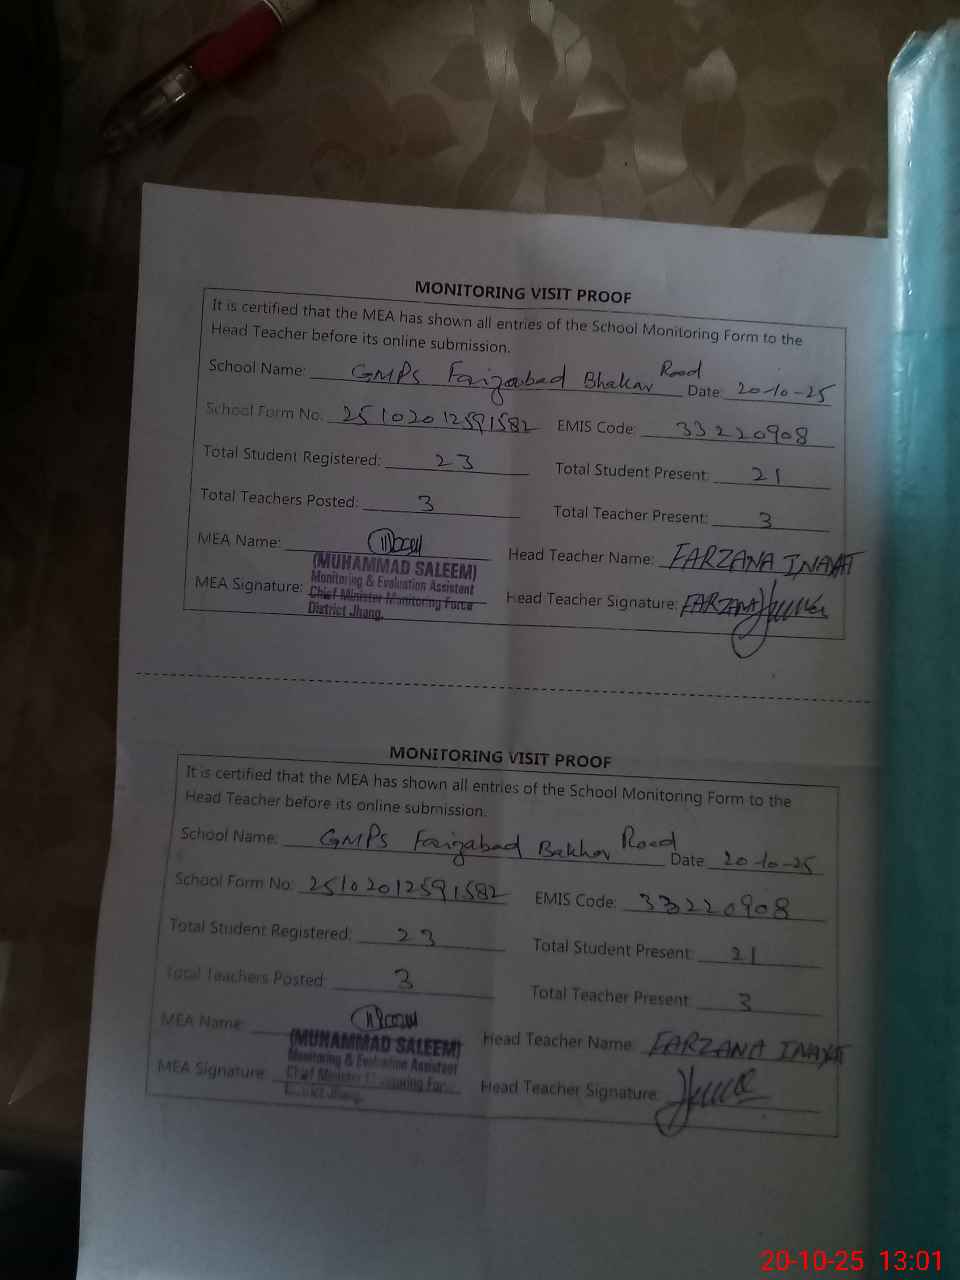 MONITORING VISIT PROOF
It is certified that the MEA has shown all entries of the School Monitoring Form to the
Head Teacher before its online submission.
School Name: GMPS Faizabad Bhakar Road Date: 20-10-25
School Form No. 25102012591582 EMIS Code: 33220908
Total Student Registered: 23 Total Student Present: 21
Total Teachers Posted: 3 Total Teacher Present: 3
MEA Name: Head Teacher Name: FARZANA INAYAT
(MUHAMMAD SALEEM)
Monitoring & Evaluation Assistent
MEA Signature: Chief Minister Monitoring Force Head Teacher Signature: FARZANA
District Jhang.
MONITORING VISIT PROOF
It is certified that the MEA has shown all entries of the School Monitoring Form to the
Head Teacher before its online submission.
School Name: GMPS Faizabad Bakhar Road Date: 20-10-25
School Form No: 25102012591582 EMIS Code: 33220908
Total Student Registered: 23 Total Student Present: 21
Total Teachers Posted: 3 Total Teacher Present: 3
MEA Name: Head Teacher Name: FARZANA INAYAT
(MUHAMMAD SALEEM)
Monitoring & Evaluation Assistent
MEA Signature: Chief Minister Monitoring For Head Teacher Signature:
District Jhang.
20-10-25 13:01